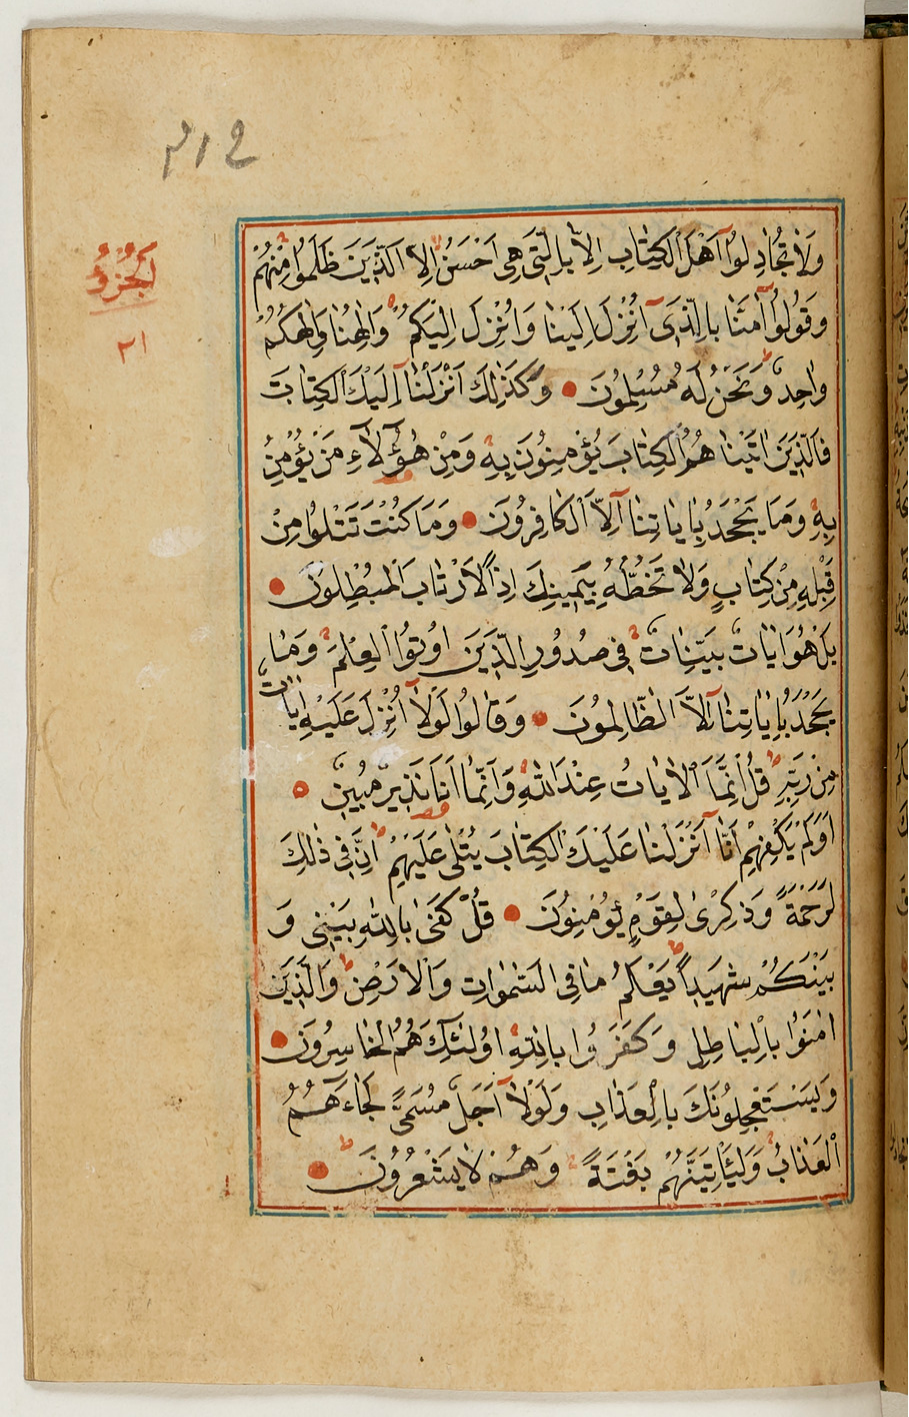 ٢١٢
الجزؤ
٢١
وَلَا تُجَادِلُوٓا اَهْلَ الْكِتَابِ اِلَّا بِالَّتِى هِىَ اَحْسَنُ اِلَّا الَّذِينَ ظَلَمُوا مِنْهُمْ
وَقُولُوٓا اٰمَنَّا بِالَّذِىٓ اُنْزِلَ اِلَيْنَا وَاُنْزِلَ اِلَيْكُمْ وَاِلٰهُنَا وَاِلٰهُكُمْ
وَاحِدٌ وَنَحْنُ لَهُ مُسْلِمُونَ وَكَذٰلِكَ اَنْزَلْنَآ اِلَيْكَ الْكِتَابَ
فَالَّذِينَ اٰتَيْنَا هُمُ الْكِتَابَ يُؤْمِنُونَ بِهِ وَمِنْ هٰٓؤُلَآءِ مَنْ يُؤْمِنُ
بِهِ وَمَا يَجْحَدُ بِاٰيَاتِنَآ اِلَّا الْكَافِرُونَ وَمَا كُنْتَ تَتْلُوا مِنْ
قَبْلِهِ مِنْ كِتَابٍ وَلَا تَخُطُّهُ بِيَمِينِكَ اِذًا لَارْتَابَ الْمُبْطِلُونَ
بَلْ هُوَ اٰيَاتٌ بَيِّنَاتٌ فِى صُدُورِ الَّذِينَ اُوتُوا الْعِلْمَ وَمَا
يَجْحَدُ بِاٰيَاتِنَآ اِلَّا الظَّالِمُونَ وَقَالُوا لَوْلَآ اُنْزِلَ عَلَيْهِ اٰيَاتٌ
مِنْ رَبِّهِ قُلْ اِنَّمَا الْاٰيَاتُ عِنْدَ اللّٰهِ وَاِنَّمَا اَنَا نَذِيرٌ مُبِينٌ
اَوَلَمْ يَكْفِهِمْ اَنَّآ اَنْزَلْنَا عَلَيْكَ الْكِتَابَ يُتْلٰى عَلَيْهِمْ اِنَّ فِى ذٰلِكَ
لَرَحْمَةً وَذِكْرٰى لِقَوْمٍ يُؤْمِنُونَ قُلْ كَفٰى بِاللّٰهِ بَيْنِى وَ
بَيْنَكُمْ شَهِيدًا يَعْلَمُ مَا فِى السَّمٰوَاتِ وَالْاَرْضِ وَالَّذِينَ
اٰمَنُوا بِالْبَاطِلِ وَكَفَرُوا بِاللّٰهِ اُولٰٓئِكَ هُمُ الْخَاسِرُونَ
وَيَسْتَعْجِلُونَكَ بِالْعَذَابِ وَلَوْلَآ اَجَلٌ مُسَمًّى لَجَآءَهُمُ
الْعَذَابُ وَلَيَاْتِيَنَّهُمْ بَغْتَةً وَهُمْ لَا يَشْعُرُونَ